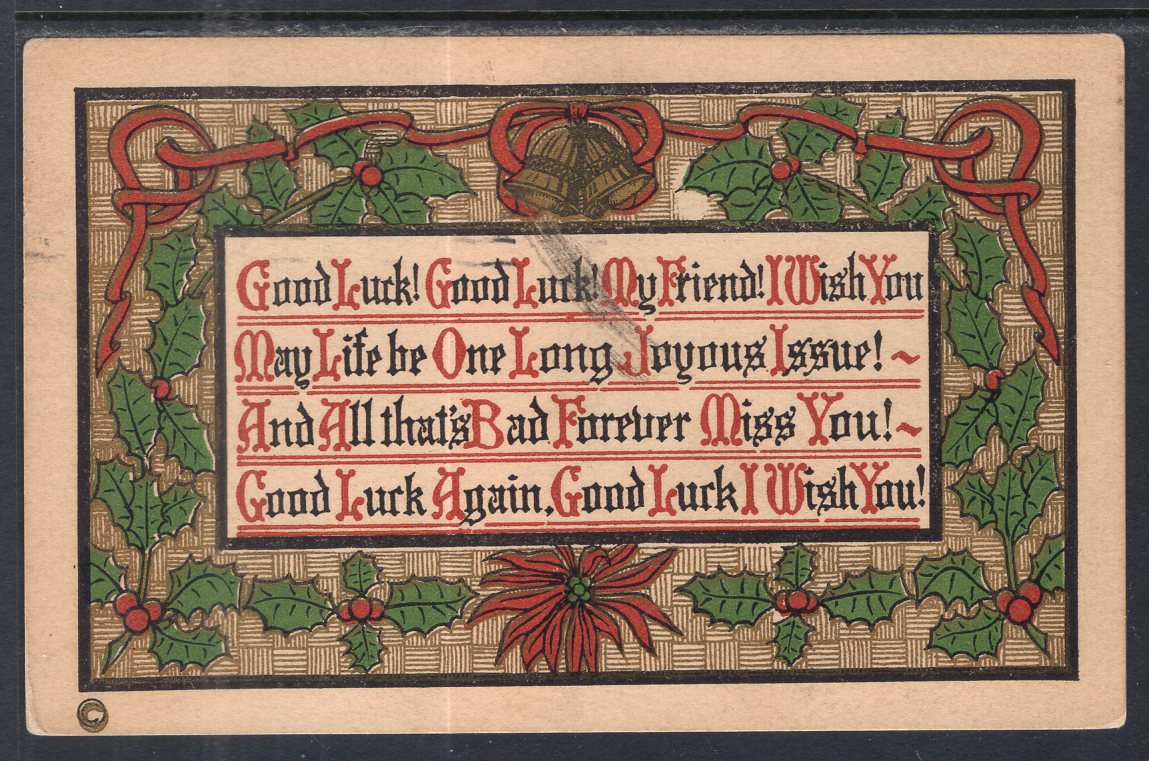 Good Luck! Good Luck! My Friend! I Wish You
May Life be One Long Joyous Issue! ~
And All that's Bad Forever Miss You! ~
Good Luck Again, Good Luck I Wish You!
©